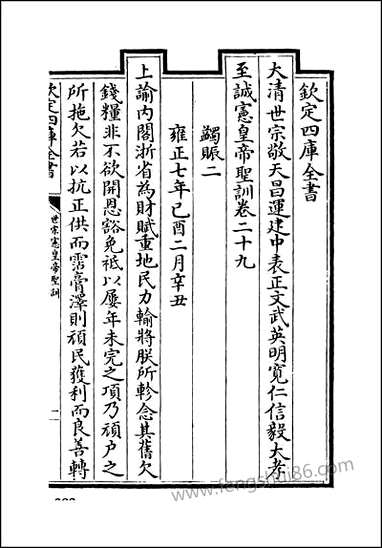 欽定四庫全書
大清世宗敬天昌運建中表正文武英明寛仁信毅大孝
至誠憲皇帝聖訓卷二十九
蠲賑二
雍正七年己酉二月辛丑
上諭内閣浙省為財賦重地民力輸將朕所軫念其舊欠
錢糧非不欲開恩豁免祗以屡年未完之項乃頑户之
所拖欠若以抗正供而霑膏澤則頑民獲利而良善轉
欽定四庫全書
世宗憲皇帝聖訓
一
www.fengshui86.com